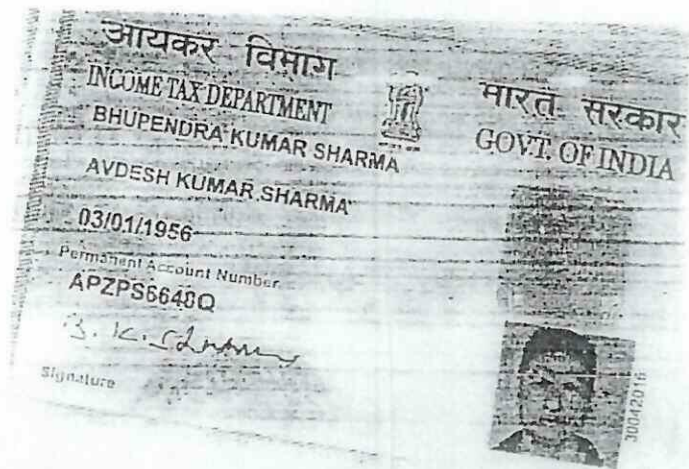 आयकर विभाग
INCOME TAX DEPARTMENT
भारत सरकार
GOVT. OF INDIA
BHUPENDRA KUMAR SHARMA
AVDESH KUMAR SHARMA
03/01/1956
Permanent Account Number
B. K. Sharma
Signature
30042016